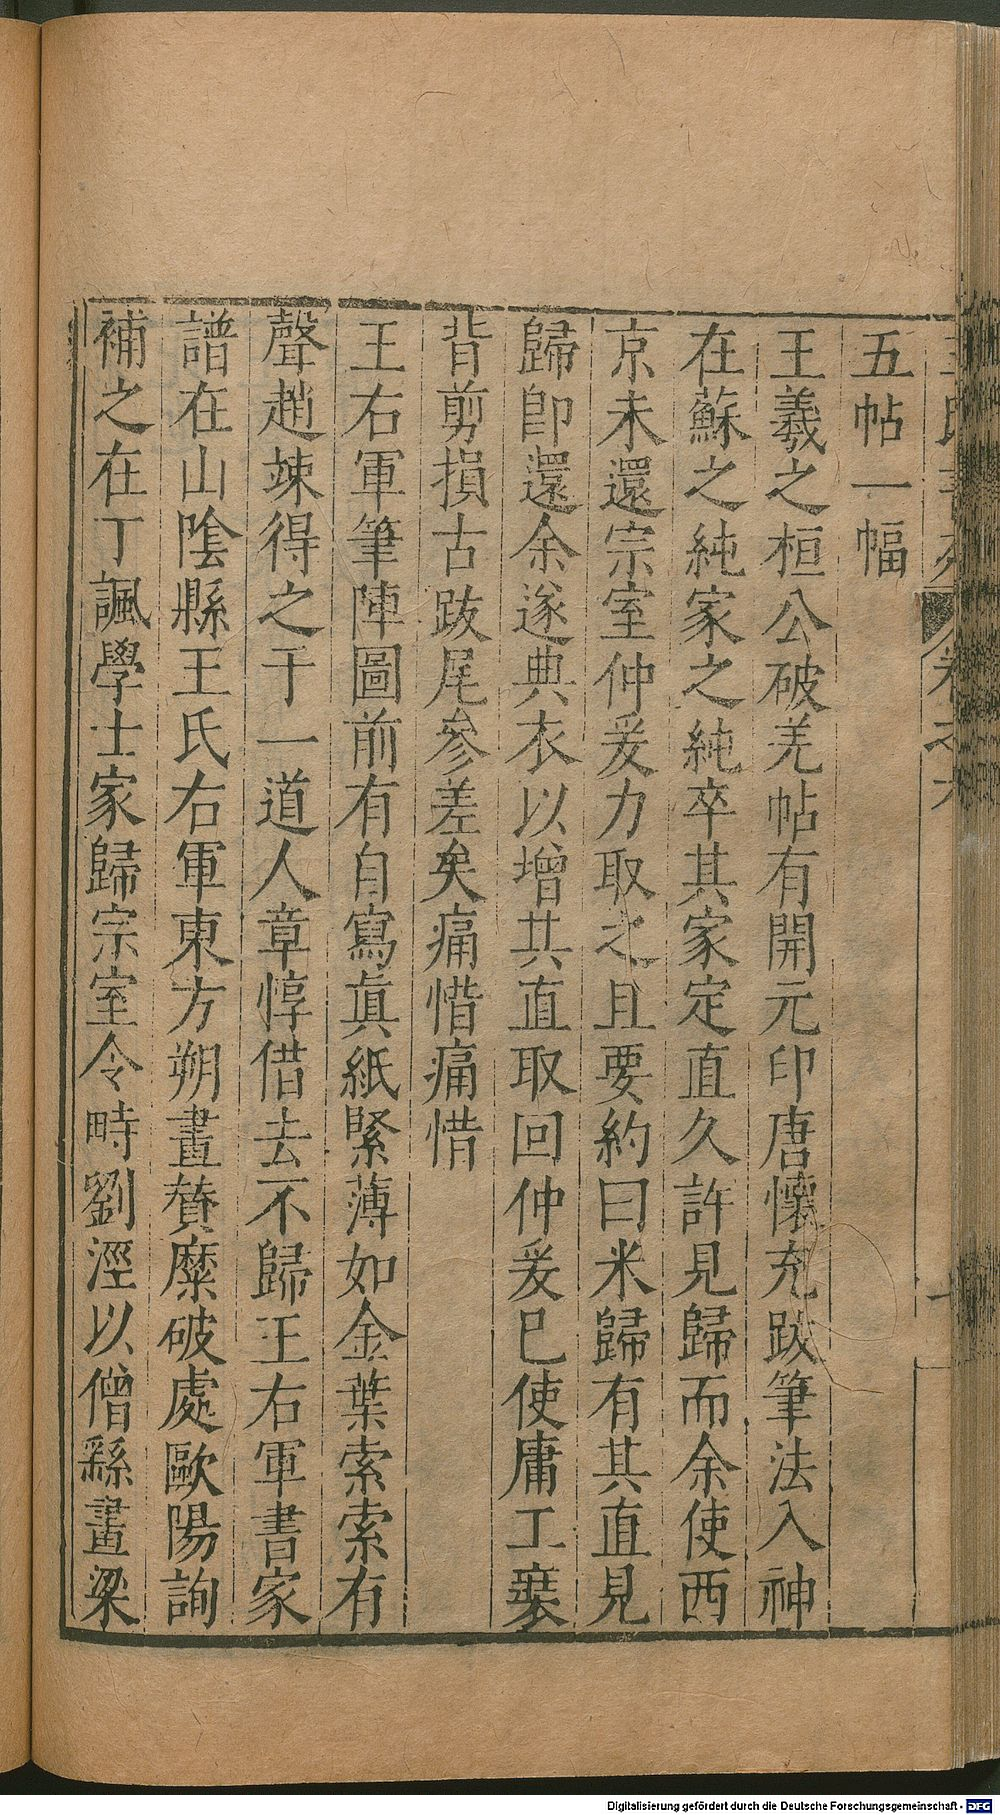 五帖一幅
王羲之桓公破羌帖有開元印唐懷充跋筆法入神
在蘇之純家之純卒其家定直久許見歸而余使西
京未還宗室仲爰力取之且要約曰米歸有其直見
歸卽還余遂典衣以增其直取回仲爰已使庸工裝
背剪損古跋尾參差矣痛惜痛惜
王右軍筆陣圖前有自寫眞紙緊薄如金葉索索有
聲趙竦得之于一道人章惇借去不歸王右軍書家
譜在山陰縣王氏右軍東方朔畫贊糜破處歐陽詢
補之在丁諷學士家歸宗室令畤劉涇以僧繇畫梁
Digitalisierung gefördert durch die Deutsche Forschungsgemeinschaft - DFG